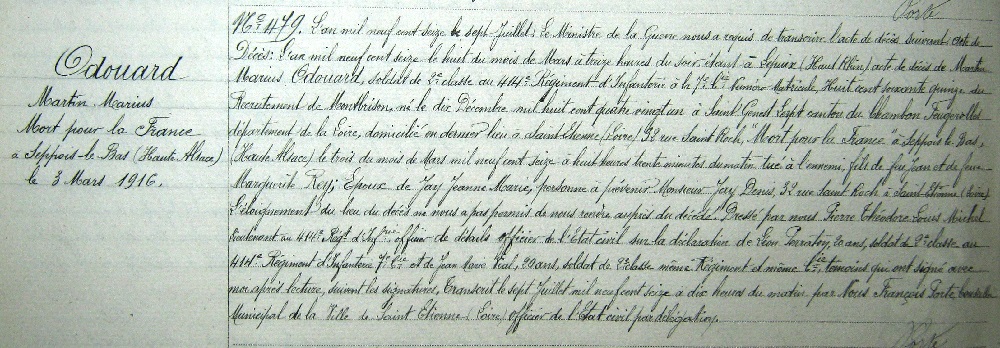 Porte
Odouard
Martin Marius
Mort pour la France
à Seppois-le-Bas (Haute Alsace)
le 3 Mars 1916.
No 479. L'an mil neuf cent seize le sept Juillet, le Ministre de la Guerre nous a requis de transcrire l'acte de décès suivant: Acte de
Décès: L'an mil neuf cent seize le huit du mois de Mars à treize heures du soir, étant à (Haut Rhin) acte de décès de Martin
Marius Odouard, soldat de 2e classe au 414e Régiment d'Infanterie à la 7e Cie Numéro Matricule, Huit cent soixante quinze du
Recrutement de Montbrison, né le dix Décembre mil huit cent quatre vingt un à Saint Genest Lerpt canton du Chambon Feugerolles
département de la Loire, domicilié en dernier lieu à Saint-Etienne (Loire) 32 rue Saint Roch, "Mort pour la France" à Seppois le Bas,
(Haute Alsace) le trois du mois de Mars mil neuf cent seize à huit heures trente minutes du matin tué à l'ennemi, fils de feu Jean et de feue
Marguerite Rey; Epoux de Jay Jeanne Marie, personne à prévenir: Monsieur Jay Denis, 32 rue Saint Roch à Saint Etienne (Loire)
L'éloignement du lieu du décès ne nous a pas permis de nous rendre auprès du décédé. Dressé par nous Pierre Théodore Louis Michel
Lieutenant au 414e Régt d'Infrie officier de détails officier de l'Etat civil sur la déclaration de Léon 20 ans, soldat de 2e classe au
414e Régiment d'Infanterie 7e Cie et de Jean Marie Vial, 20 ans, soldat de 2e classe même Régiment et même Cie, témoins qui ont signé avec
moi après lecture, suivent les signatures. Transcrit le sept Juillet mil neuf cent seize à dix heures du matin par Nous François Porte Conseiller
Municipal de la Ville de Saint Etienne (Loire) officier de l'Etat civil par délégation.
Porte